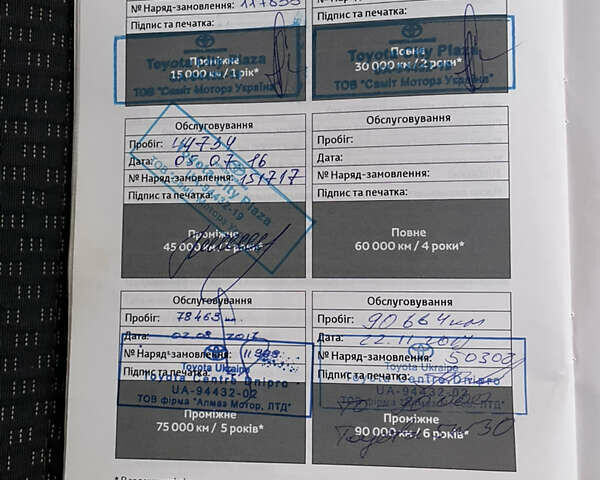 № Наряд-замовлення: 117833
Підпис та печатка:
Toyota City Plaza
Проміжне
15 000 км / 1 рік*
ТОВ "Саміт Моторз Україна"
№ Наряд-замовлення:
Підпис та печатка:
Toyota City Plaza
Повне
30 000 км / 2 роки*
ТОВ "Саміт Моторз Україна"
Обслуговування
Пробіг: 44734
Дата: 05.07.16
№ Наряд-замовлення: 151717
Підпис та печатка:
Toyota City Plaza
UA-94432-19
Проміжне
45 000 км / 3 роки*
Обслуговування
Пробіг:
Дата:
№ Наряд-замовлення:
Підпис та печатка:
Повне
60 000 км / 4 роки*
Обслуговування
Пробіг: 78463
Дата: 02.08.2017
№ Наряд-замовлення:
Підпис та печатка:
Toyota Ukraine
Toyota Centre Dnipro
UA-94432-02
ТОВ фірма "Алмаз Мотор, ЛТД"
Проміжне
75 000 км / 5 років*
Обслуговування
Пробіг: 90664 км
Дата: 22.11
№ Наряд-замовлення: 50302
Підпис та печатка:
Toyota Ukraine
Toyota Centre Dnipro
UA-94432-02
ТОВ фірма "Алмаз Мотор, ЛТД"
Проміжне
90 000 км / 6 років*